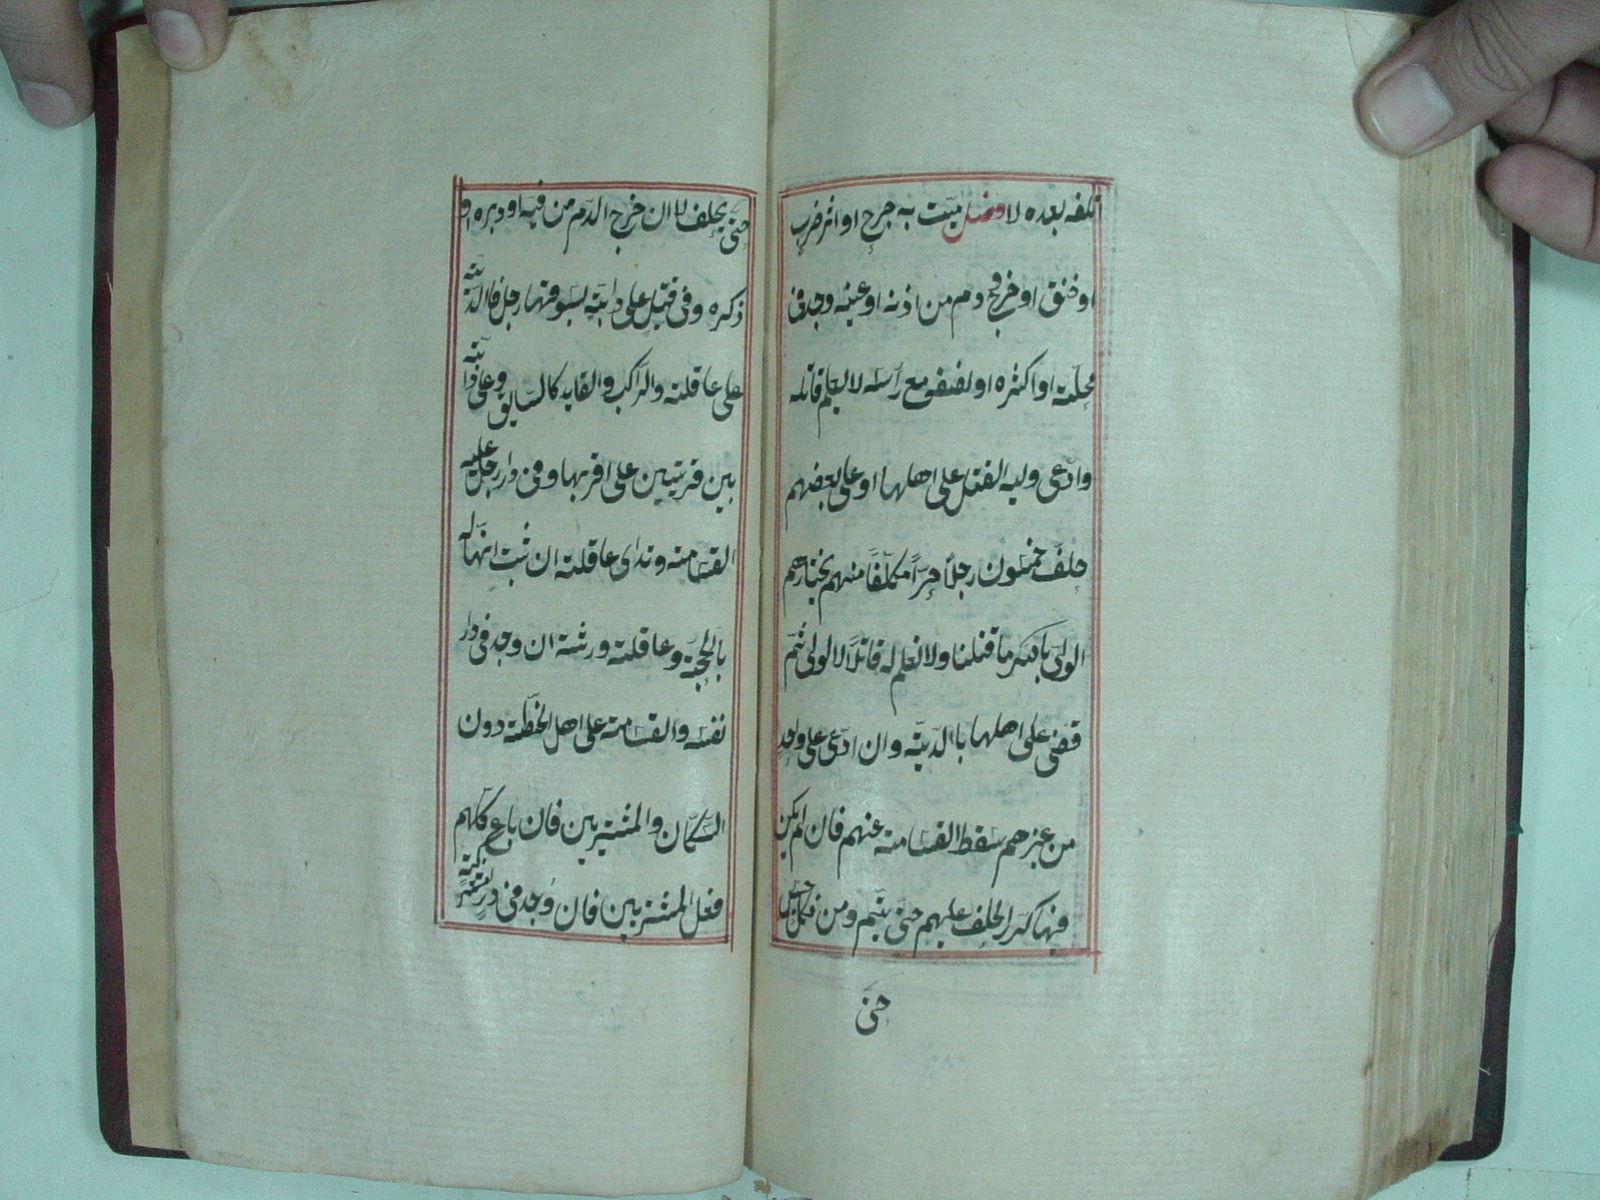 اتلفه بعده لا فصل ميّت به جرح او اثر ضرب
او خنق او خروج دم من اذنه او عينه وجد فى
محلّة او اكثره او نصف مع رأسه لا يعلم قاتله
وادّعى وليه القتل على اهلها او على بعضهم
حلف خمسون رجلاً حرّاً مكلّفاً منهم يختارهم
الولىّ بالله ما قتلنا ولا نعلم له قاتلاً لا الولى ثمّ
قضى على اهلها بالديّة وان ادّعى على واحد
من غيرهم سقط القسامة عنهم فان لم يكن
فيها كرّر الحلف عليهم حتّى يتم ومن نكل حبس
حتى
حتّى يحلف لا ان خرج الدّم من فيه او دبره او
ذكره وفى قتيل على دابّة يسوقها رجل فالديّة
على عاقلته والراكب والقايد كالسايق وعلى دابّة
بين قريتين على اقربها وفى دار رجل عليه
القسامة وتدى عاقلته ان ثبت انها له
بالحجّة وعاقلته ورثته ان وجد فى دار
نفسه والقسامة على اهل الخطّة دون
السّكّان والمشترين فان باع كلّهم
فعلى المشترين فان وجد فى دار مشتركة